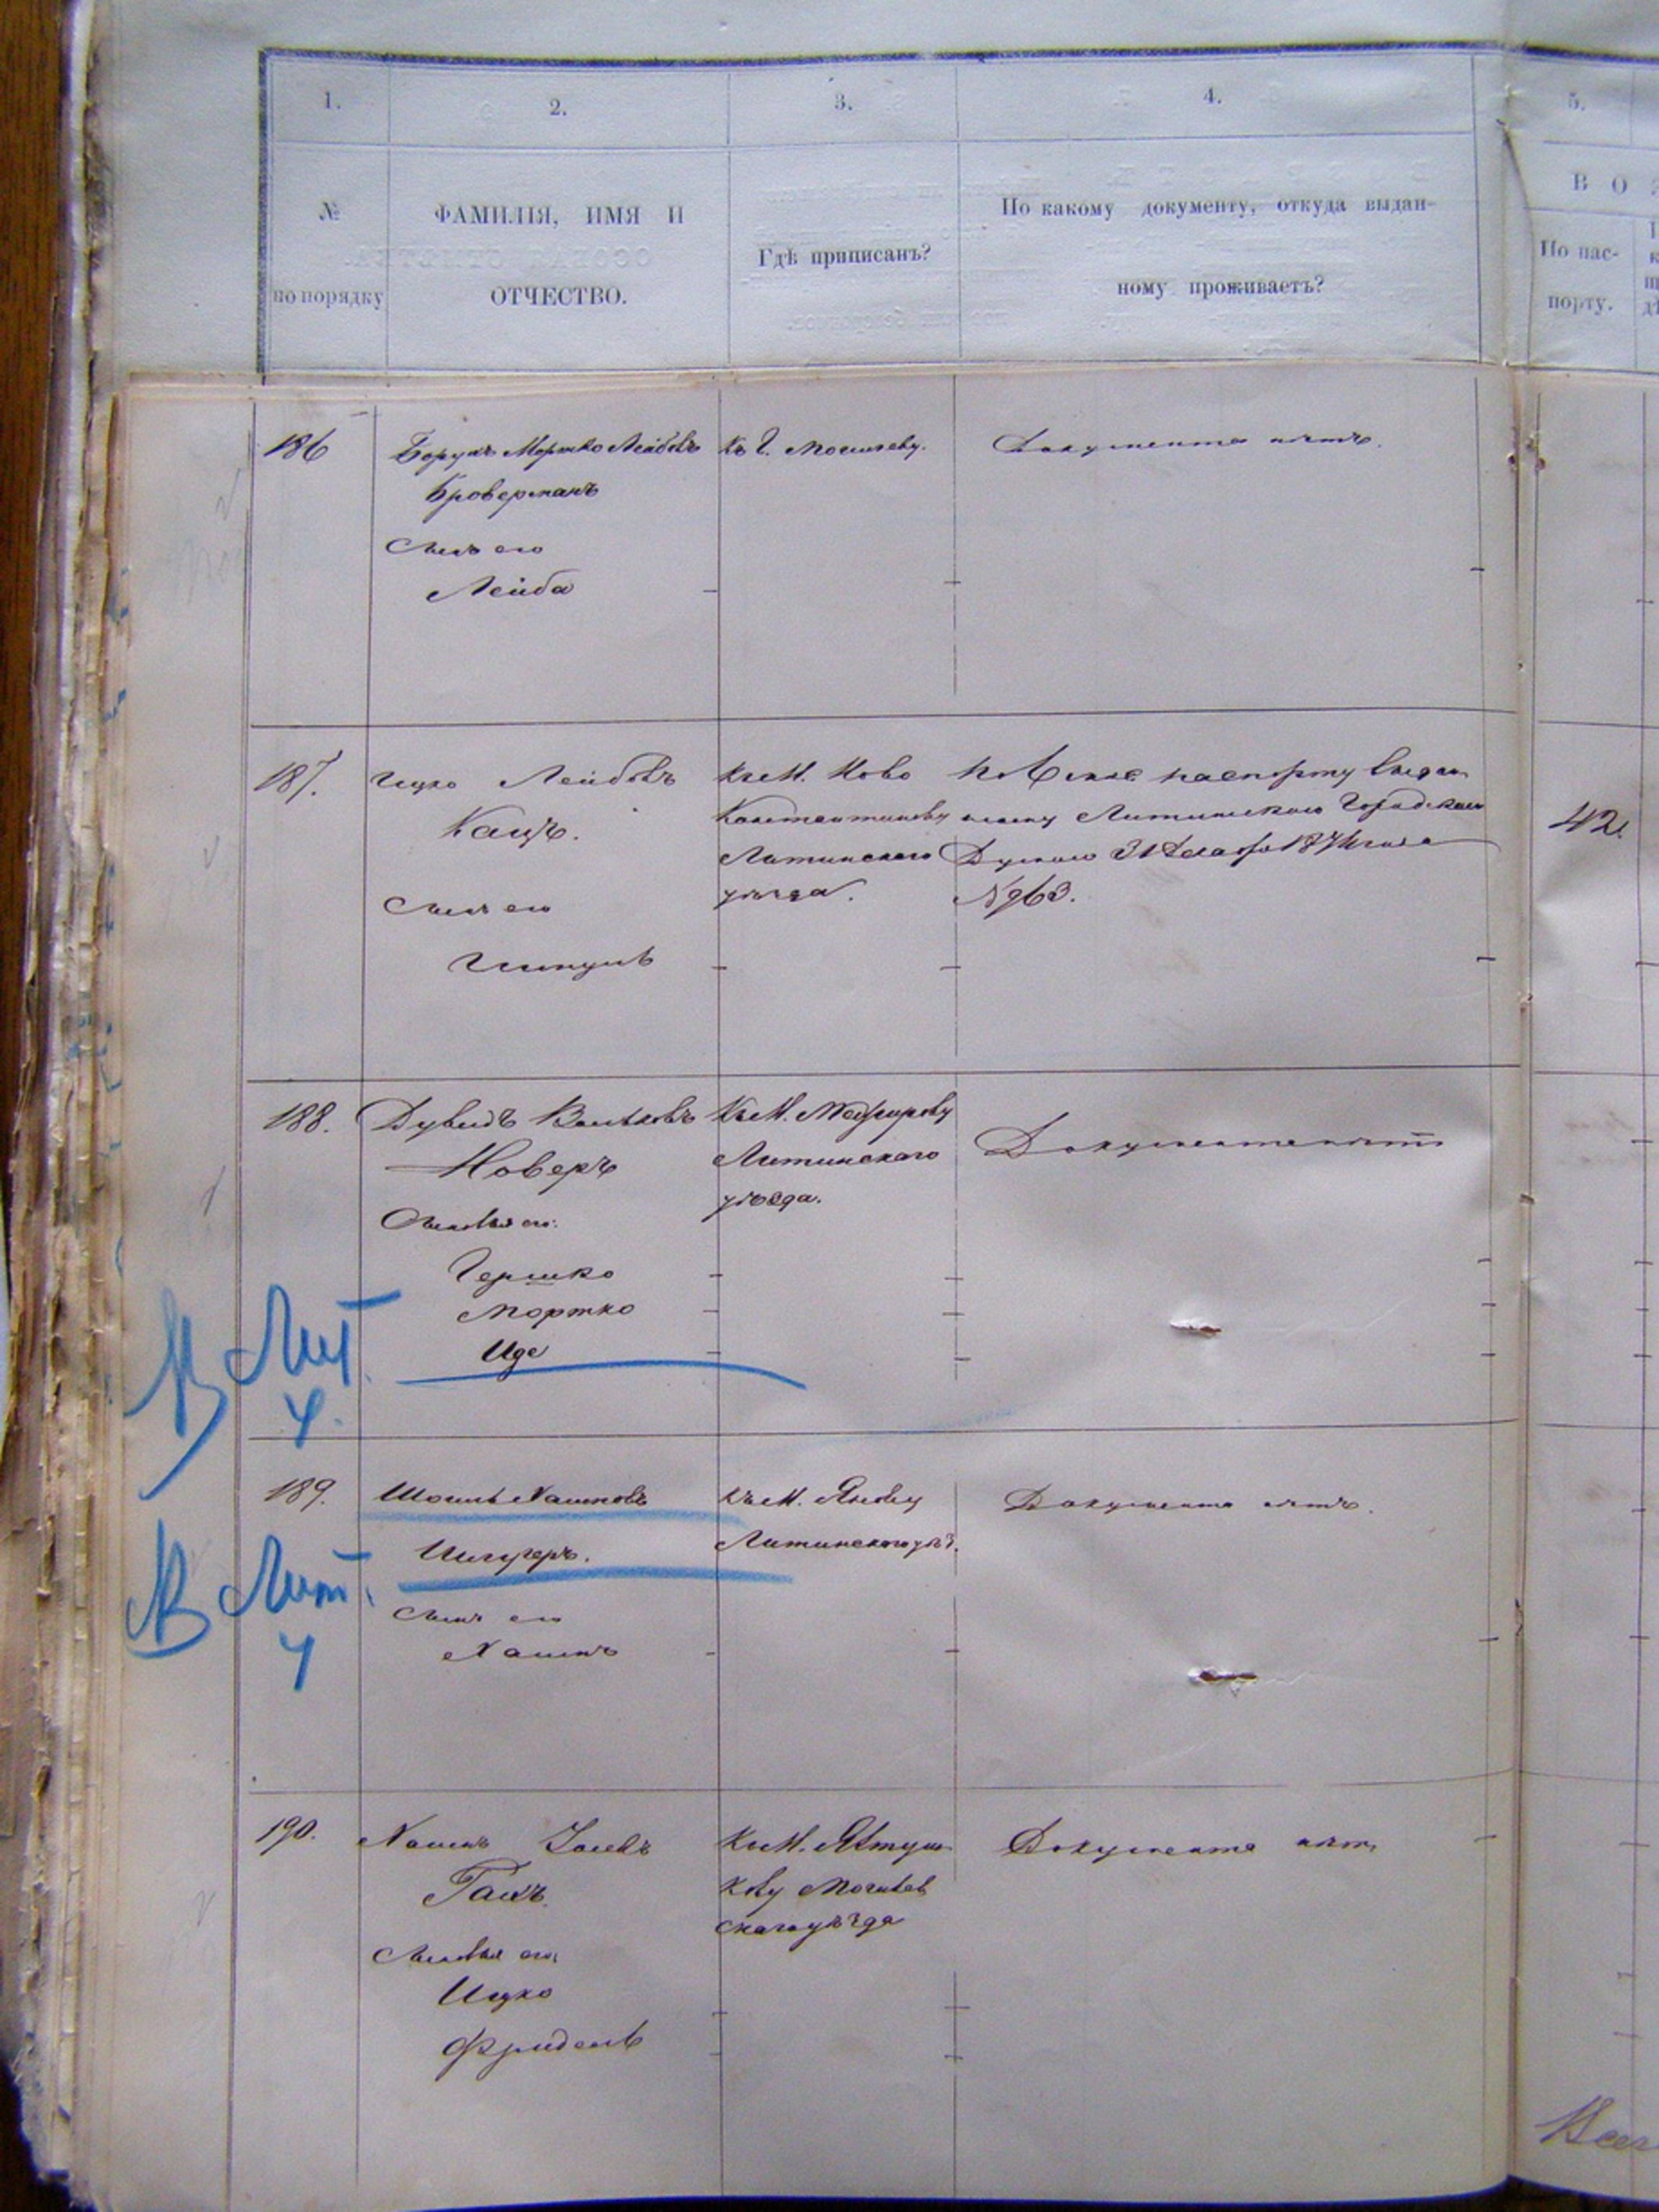 1.
2.
3.
4.
5.
№
по порядку
ФАМИЛІЯ, ИМЯ И
ОТЧЕСТВО.
Гдѣ приписанъ?
По какому документу, откуда выдан-
ному проживаетъ?
В О
По пас-
порту.
186
Борухъ Мортко Лейбовъ
Броверманъ
Сынъ его
Лейба
Къ г. Могилеву.
Документа нѣтъ.
187.
Ицко Лейбовъ
Кацъ.
Сынъ его
Къ М. Ново
Константинову
Литинского
уѣзда.
паспорту выдан
ному Литинскою Городскою
Думою 31 Декабря 1874 года
№ 963.
42
188.
Дувидъ Вольковъ
Новеръ
Сыновья его:
Гершко
Мортко
Иде
Къ М.
Литинского
уѣзда.
Документа нѣтъ
В Лит.
ч.
189.
Хаимовъ
Сынъ его
Хаимъ
Къ М. Янову
Литинского уѣз.
Документа нѣтъ.
В Лит.
ч
190.
Хаимъ
Гакъ
Сыновья его:
Ицко
Фридель
Къ М. Ялтуш
кову Могилев
скаго уѣзда
Документа нѣтъ